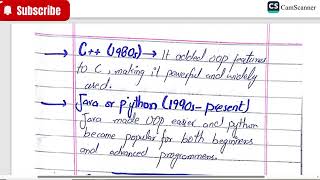 Subscribe
CS CamScanner
→ C++ (1980s) → It added OOP features
to C, making it powerful and widely
used.
→ Java or Python (1990s-present)
Java made OOP easier and python
became popular for both beginners
and advanced programmers.